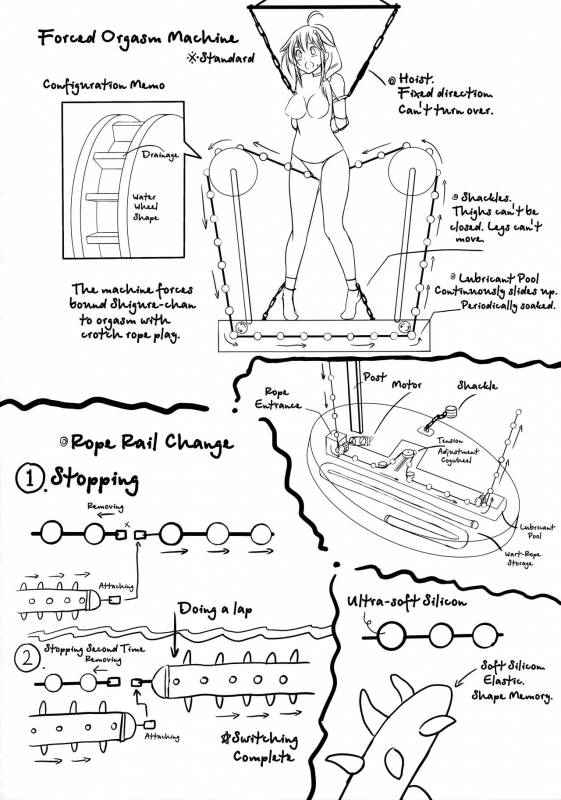 Forced Orgasm Machine
※Standard
Configuration Memo
Drainage
Water
Wheel
Shape
◎ Hoist.
Fixed direction.
Can't turn over.
◎ Shackles.
Thighs can't be
closed. Legs can't
move.
◎ Lubricant Pool
Continuously slides up.
Periodically soaked.
The machine forces
bound Shigure-chan
to orgasm with
crotch rope play.
Rope
Entrance
Post
Motor
Shackle
Tension
Adjustment
Cogwheel
Lubricant
Pool
Wart-Rope
Storage
◎ Rope Rail Change
①. Stopping
Removing
x
Attaching
Doing a lap
②. Stopping Second Time
Removing
Attaching
☆Switching
Complete
Ultra-soft Silicon
Soft Silicon
Elastic.
Shape Memory.